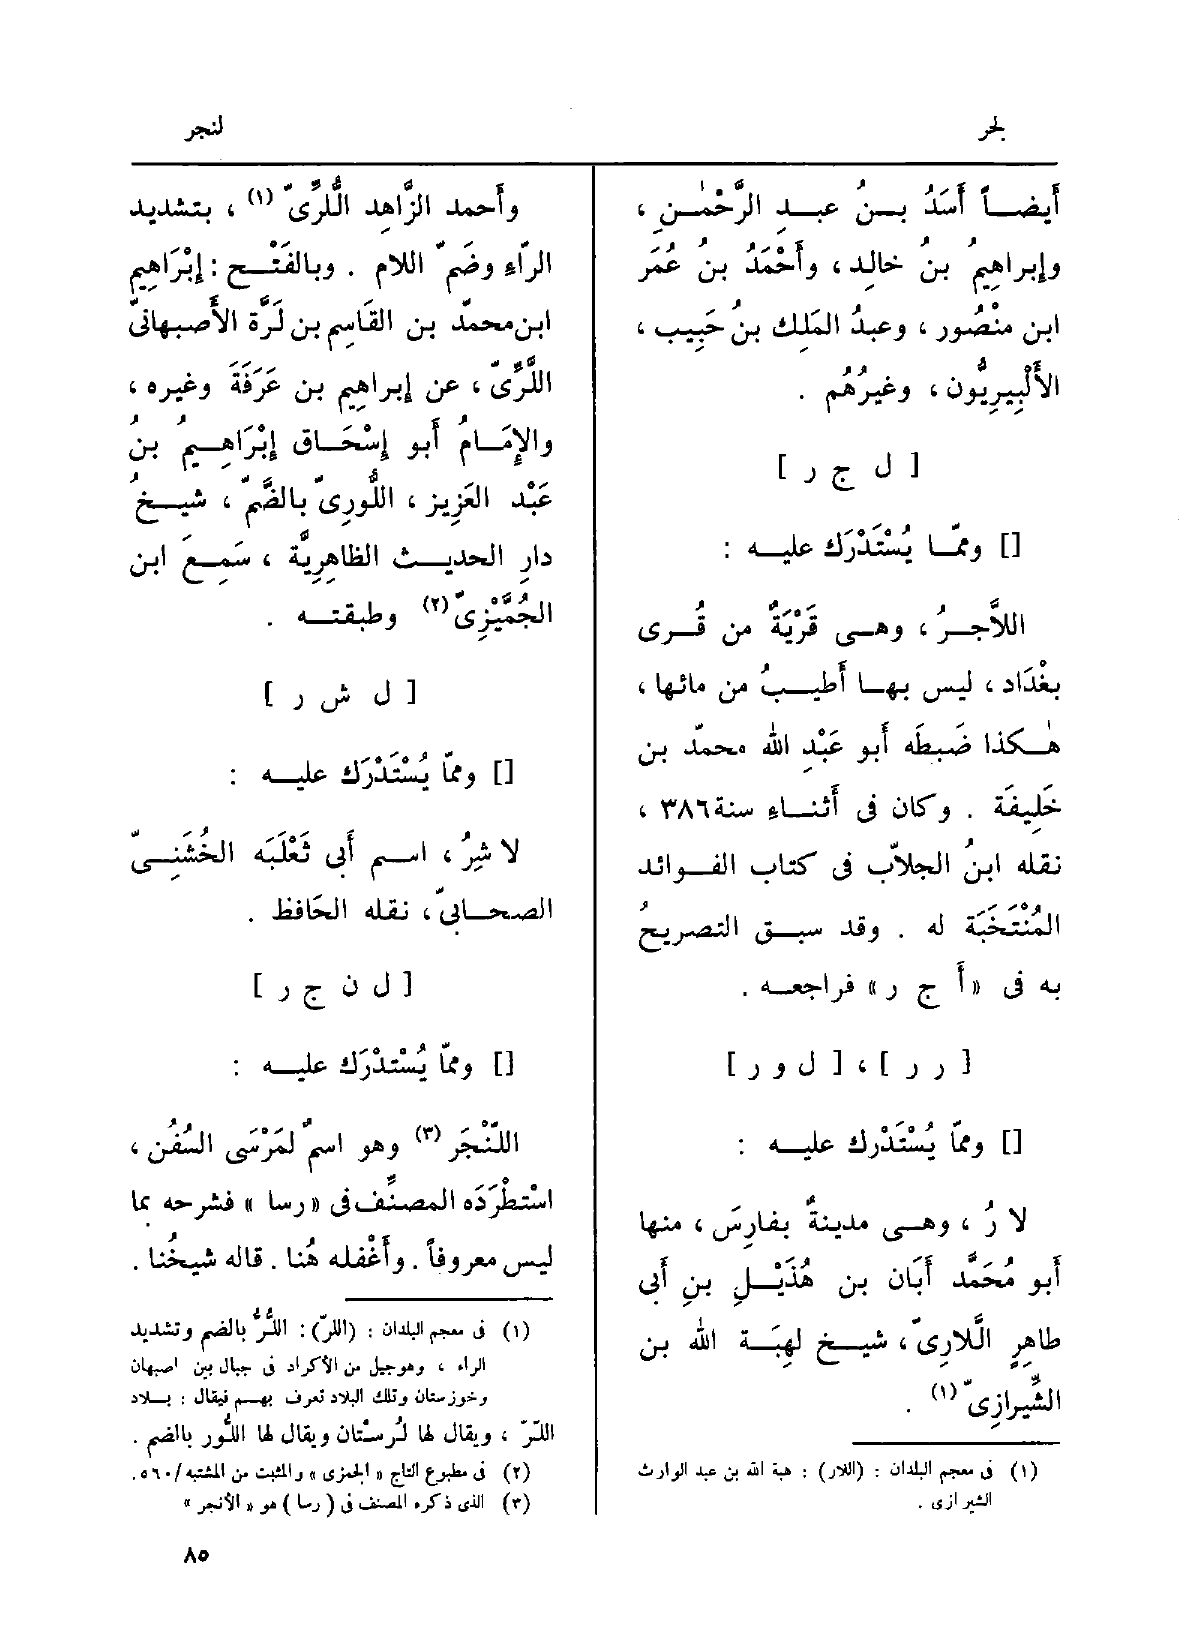 لجر
لنجر
أيضاً أَسَدُ بنُ عبدِ الرَّحْمٰنِ ،
وإبراهيمُ بنُ خالد ، وأَحْمَدُ بنُ عُمَر
ابن منْصُور ، وعبدُ المَلِك بنُ حَبِيب ،
الأَلْبِيرِيُّون ، وغيرُهُم .
[ ل ج ر ]
[] وممّا يُسْتَدْرَك عليه :
اللاَّجرُ ، وهى قَرْيَةٌ من قُرى
بغْدَاد ، ليس بها أَطيبُ من مائها ،
هٰكذا ضَبطَه أَبو عَبْدِ الله محمّد بن
خَلِيفَة . وكان فى أَثناءِ سنة ٣٨٦ ،
نقله ابنُ الجلاّب فى كتاب الفوائد
المُنْتَخَبَة له . وقد سبق التصريحُ
به فى « أَ ج ر » فراجعه .
[ ر ر ] ، [ ل و ر ]
[] وممّا يُسْتَدْرك عليه :
لا رُ ، وهى مدينةٌ بفارِسَ ، منها
أَبو مُحَمَّد أَبَان بن هُذَيْلِ بنِ أَبى
طاهِرٍ الَّلارِىّ ، شيخ لهِبَة الله بن
الشِّيرازِىّ (١) .
(١) فى معجم البلدان : (اللار) : هبة الله بن عبد الوارث
الشيرازى .
وأَحمد الزَّاهِد اللُّرِّىّ (١) ، بتشديد
الرّاءِ وضَمّ اللام . وبالفَتْح : إِبْرَاهِيم
ابن محمّد بن القَاسِم بن لَرَّة الأَصبهانىّ
اللَّرِّىّ ، عن إبراهِيم بن عَرَفَة وغيره ،
والإِمَامُ أَبو إِسْحَاق إِبْرَاهِيمُ بنُ
عَبْد العَزِيز ، اللُّورِىّ بالضَّمّ ، شيخُ
دارِ الحديث الظاهِرِيَّة ، سَمِعَ ابن
الجُمَّيْزِىّ (٢) وطبقته .
[ ل ش ر ]
[] وممّا يُسْتَدْرَك عليه :
لا شِرُ ، اسم أَبى ثَعْلَبَه الخُشَنِىّ
الصحابىّ ، نقله الحَافظ .
[ ل ن ج ر ]
[] وممّا يُسْتدْرَك عليه :
اللّنْجَر (٣) وهو اسمٌ لمَرْسَى السُفُن ،
استْطْرَدَه المصنِّف فى « رسا » فشرحه بما
ليس معروفاً . وأَغْفله هُنا . قاله شيخُنا .
(١) فى معجم البلدان : (اللرّ) : اللُّرُّ بالضم وتشديد
الراء ، وهو جيل من الأكراد فى جبال بين اصبهان
وخوزستان وتلك البلاد تعرف بهم فيقال : بلاد
اللرّ ، ويقال لها لُرسْتان ويقال لها اللُّور بالضم .
(٢) فى مطبوع التاج « الجمزى » والمثبت من المشتبه / ٥٦٠ .
(٣) الذى ذكره المصنف فى ( رسا ) هو « الأنجر »
٨٥